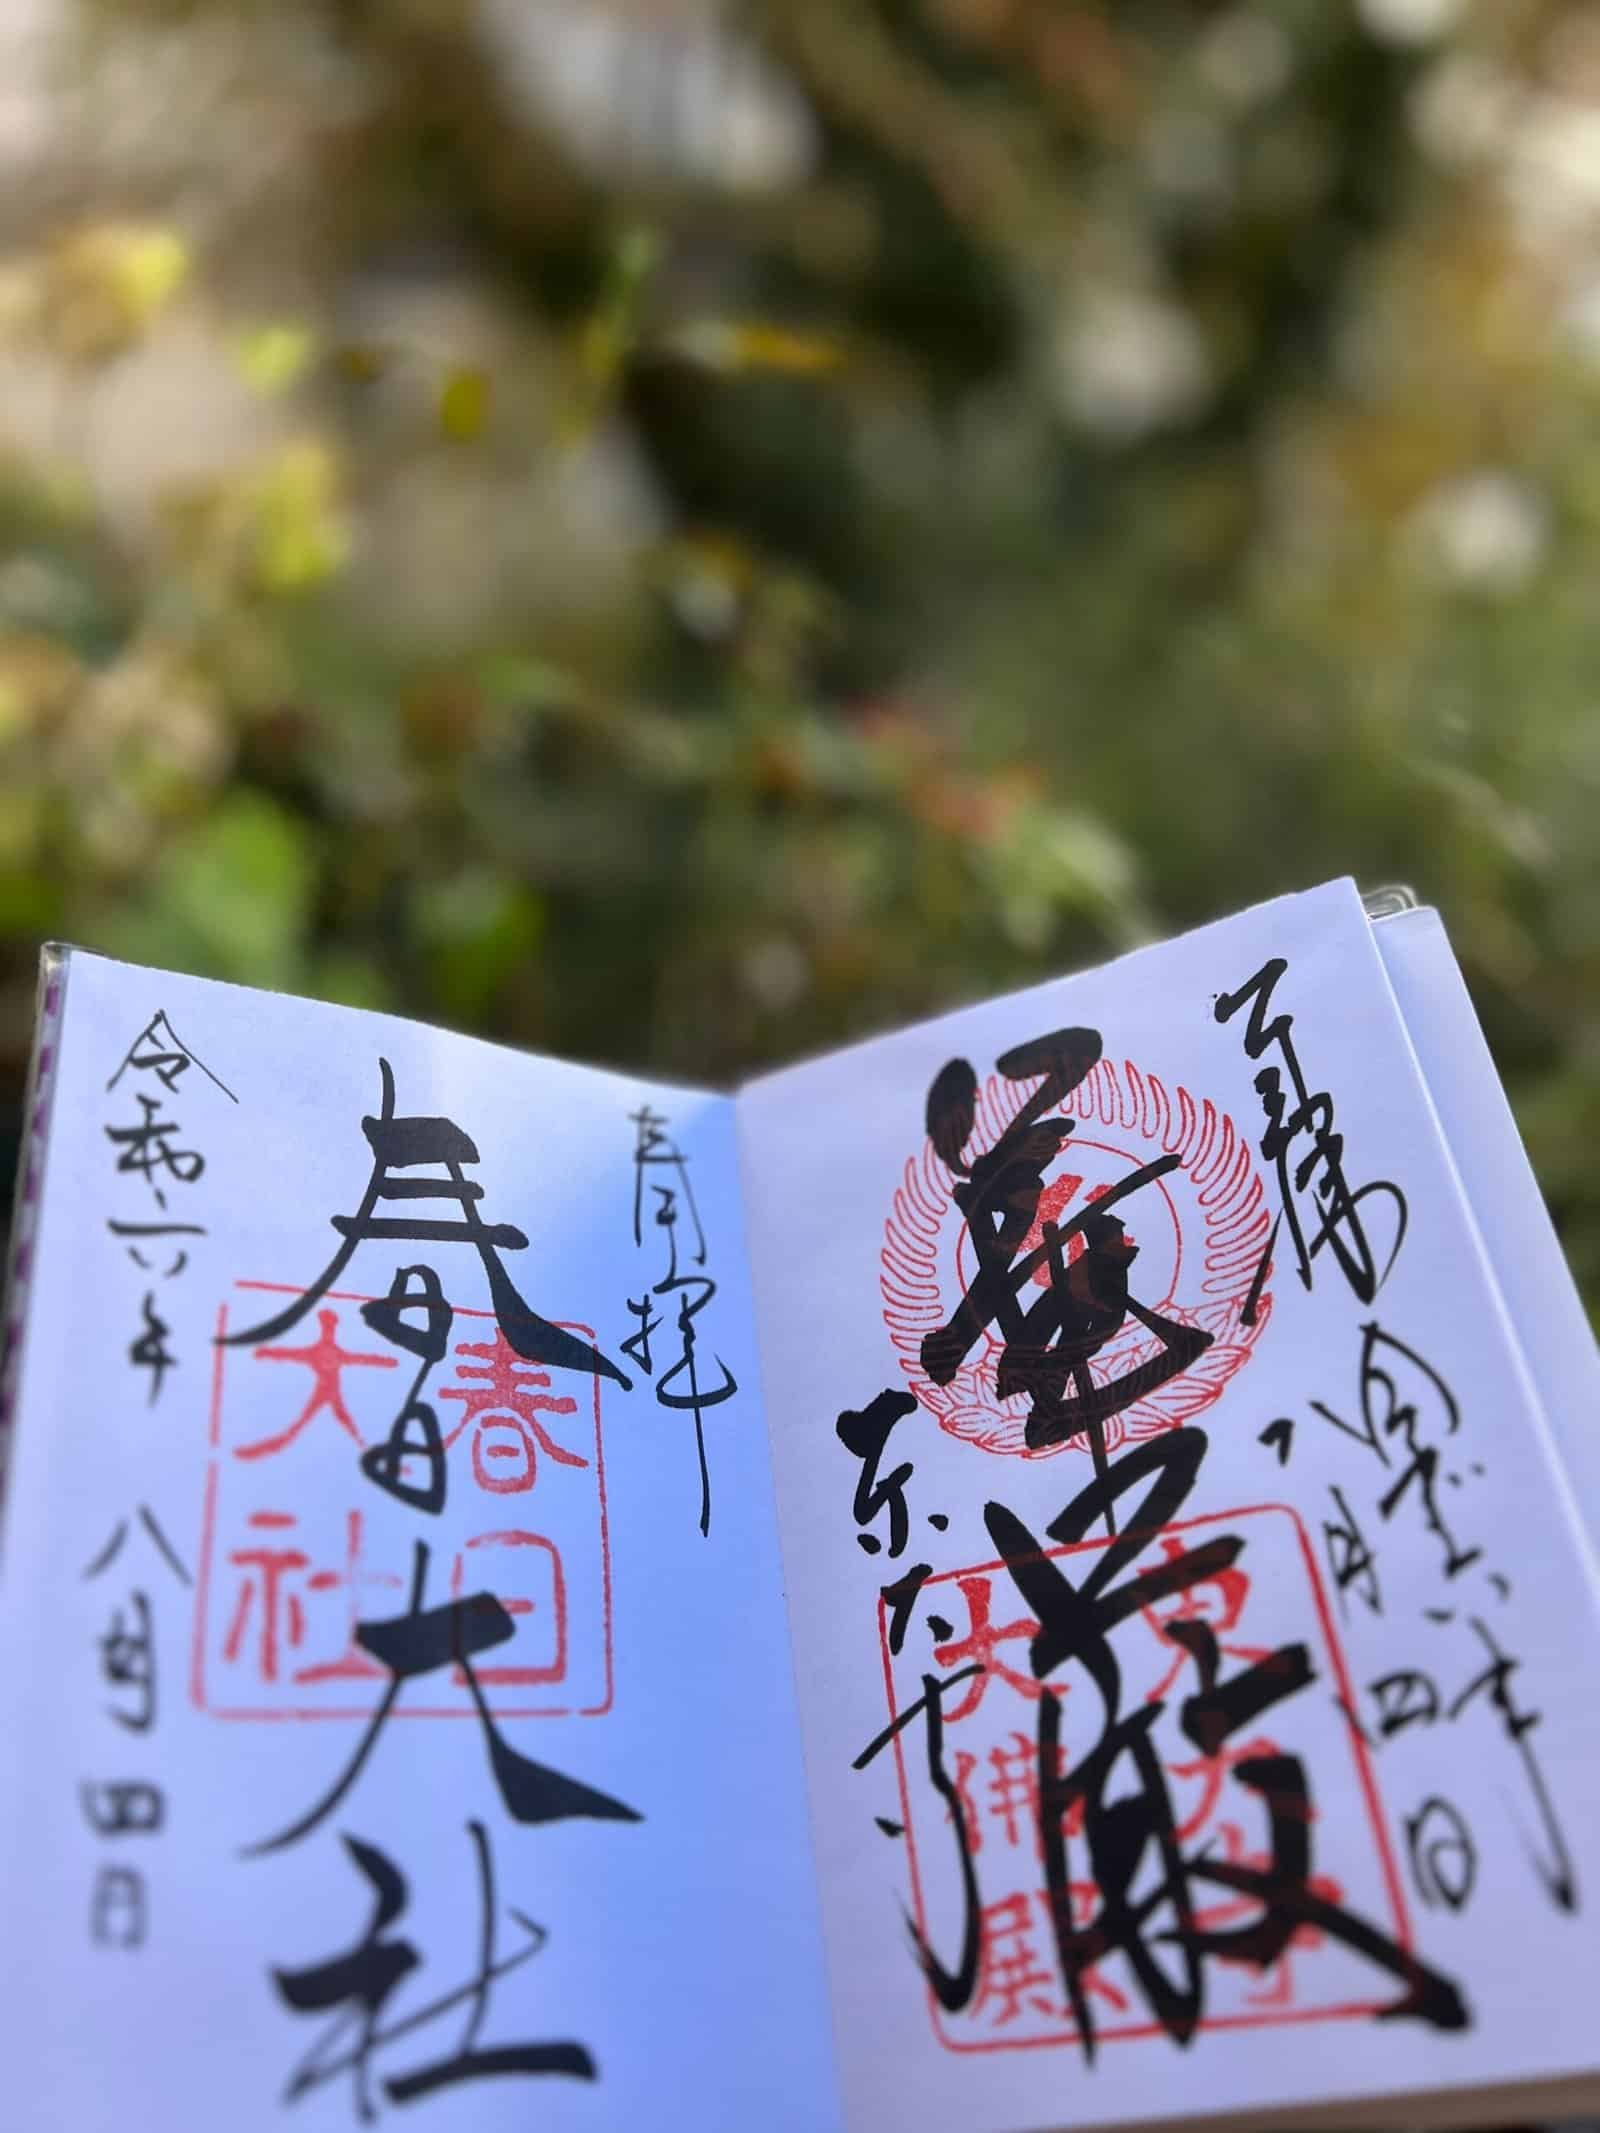 奉拝
令和六年
八月四日
華厳
東大寺
東大寺
大佛殿
奉拝
春日大社
春日
大社
令和六年
八月四日